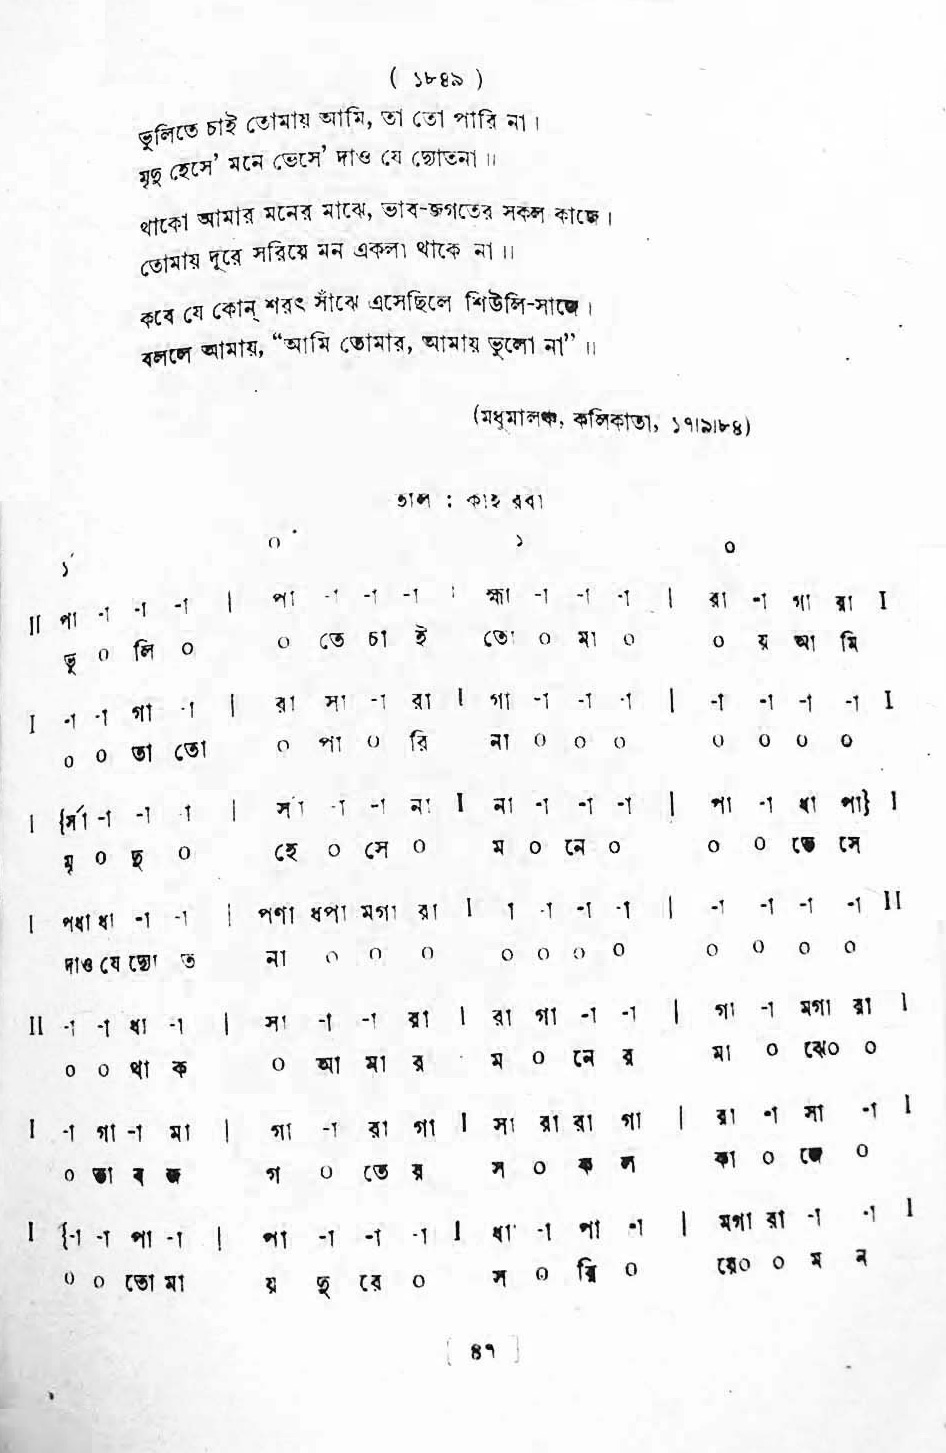 ( ১৮৪৯ )
ভুলিতে চাই তোমায় আমি, তা তো পারি না ।
মৃদু হেসে’ মনে ভেসে’ দাও যে দ্যোতনা ॥
থাকো আমার মনের মাঝে, ভাব-জগতের সকল কাজে ।
তোমায় দূরে সরিয়ে মন একলা থাকে না ॥
কবে যে কোন্ শরৎ সাঁঝে এসেছিলে শিউলি-সাজে ।
বললে আমায়, “আমি তোমার, আমায় ভুলো না” ॥
(মধুমালঞ্চ, কলিকাতা, ১৭।৯।৮৪)
তাল : কাহরবা
১´ ০ ১ ০
II পা -া -া -া | পা -া -া -া | হ্মা -া -া -া | রা -া গা রা I
ভু ০ লি ০ ০ তে চা ই তো ০ মা ০ ০ য় আ মি
I -া -া গা -া | রা সা -া রা I গা -া -া -া | -া -া -া -া I
০ ০ তা তো ০ পা ০ রি না ০ ০ ০ ০ ০ ০ ০
I {র্সা -া -া া | র্সা -া -া না I না -া -া -া | পা -া ধা পা} I
মৃ ০ দু ০ হে ০ সে ০ ম ০ নে ০ ০ ০ ভে সে
I পধা ধা -া -া | পণা ধপা মগা রা I া -া -া -া | -া -া -া -া II
দাও যে দ্যো ত না ০ ০ ০ ০ ০ ০ ০ ০ ০ ০ ০
II -া -া ধা -া | সা -া -া রা I রা গা -া -া | গা -া মগা রা I
০ ০ থা ক ০ আ মা র ম ০ নে র মা ০ ঝে০ ০
I -া গা -া মা | গা -া রা গা I সা রা রা গা | রা -া সা -া I
০ ভা ব জ গ ০ তে র স ০ ক ল কা ০ জে ০
I {-া -া পা -া | পা -া -া -া I ধা -া পা -া | মগা রা -া -া I
০ ০ তো মা য় দূ রে ০ স ০ রি ০ য়ে০ ০ ম ন
[ ৪৭ ]